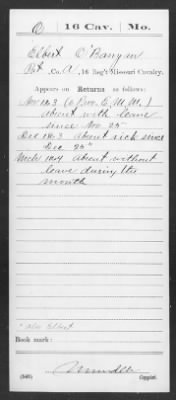 O 16 Cav. Mo.
Elbert O'Banyon
Pvt, Co. A, 16 Reg't Missouri Cavalry.
Appears on Returns as follows:
Nov 1863 (6 Prov. E. M. M.)
absent with leave
since Nov. 25"
Dec 1863 absent sick since
Dec 25"
Mch 1864 absent without
leave during the
month
Elbert
Book mark:
(546) Copyist.